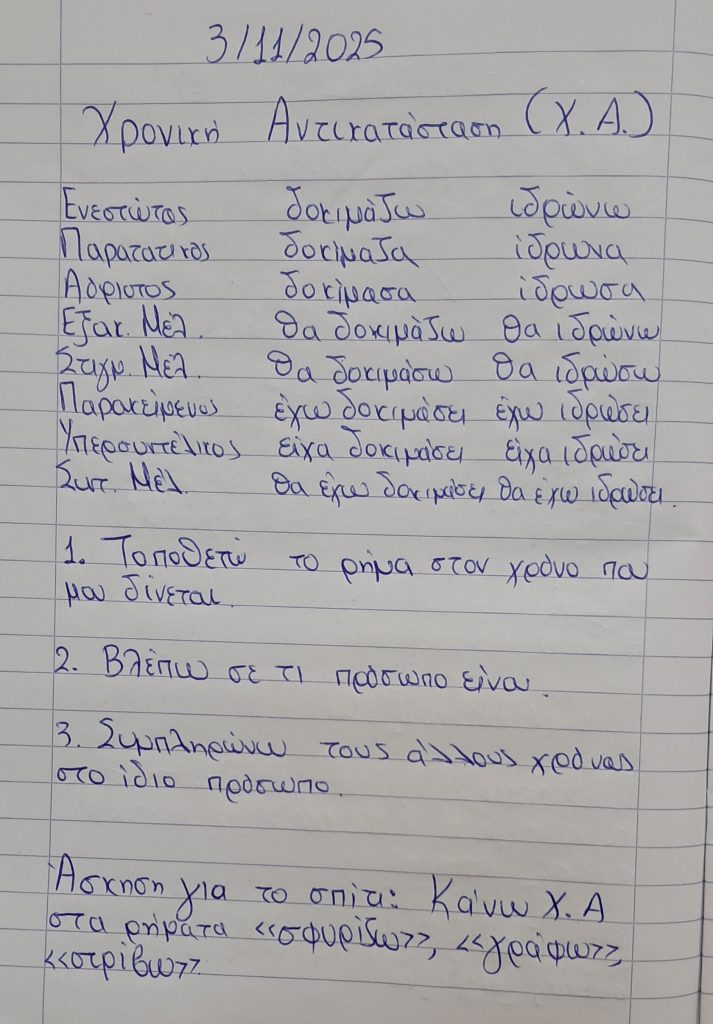 3/11/2025
Χρονική Αντικατάσταση (Χ.Α.)
Ενεστώτας δοκιμάζω ιδρώνω
Παρατατικός δοκίμαζα ίδρωνα
Αόριστος δοκίμασα ίδρωσα
Εξακ. Μέλ. θα δοκιμάζω θα ιδρώνω
Στιγμ. Μέλ. θα δοκιμάσω θα ιδρώσω
Παρακείμενος έχω δοκιμάσει έχω ιδρώσει
Υπερσυντέλικος είχα δοκιμάσει είχα ιδρώσει
Συντ. Μέλ. θα έχω δοκιμάσει θα έχω ιδρώσει.
1. Τοποθετώ το ρήμα στον χρόνο που
μου δίνεται.
2. Βλέπω σε τι πρόσωπο είναι.
3. Συμπληρώνω τους άλλους χρόνους
στο ίδιο πρόσωπο.
Άσκηση για το σπίτι: Κάνω Χ.Α
στα ρήματα «σφυρίζω», «γράφω»,
«στρίβω».